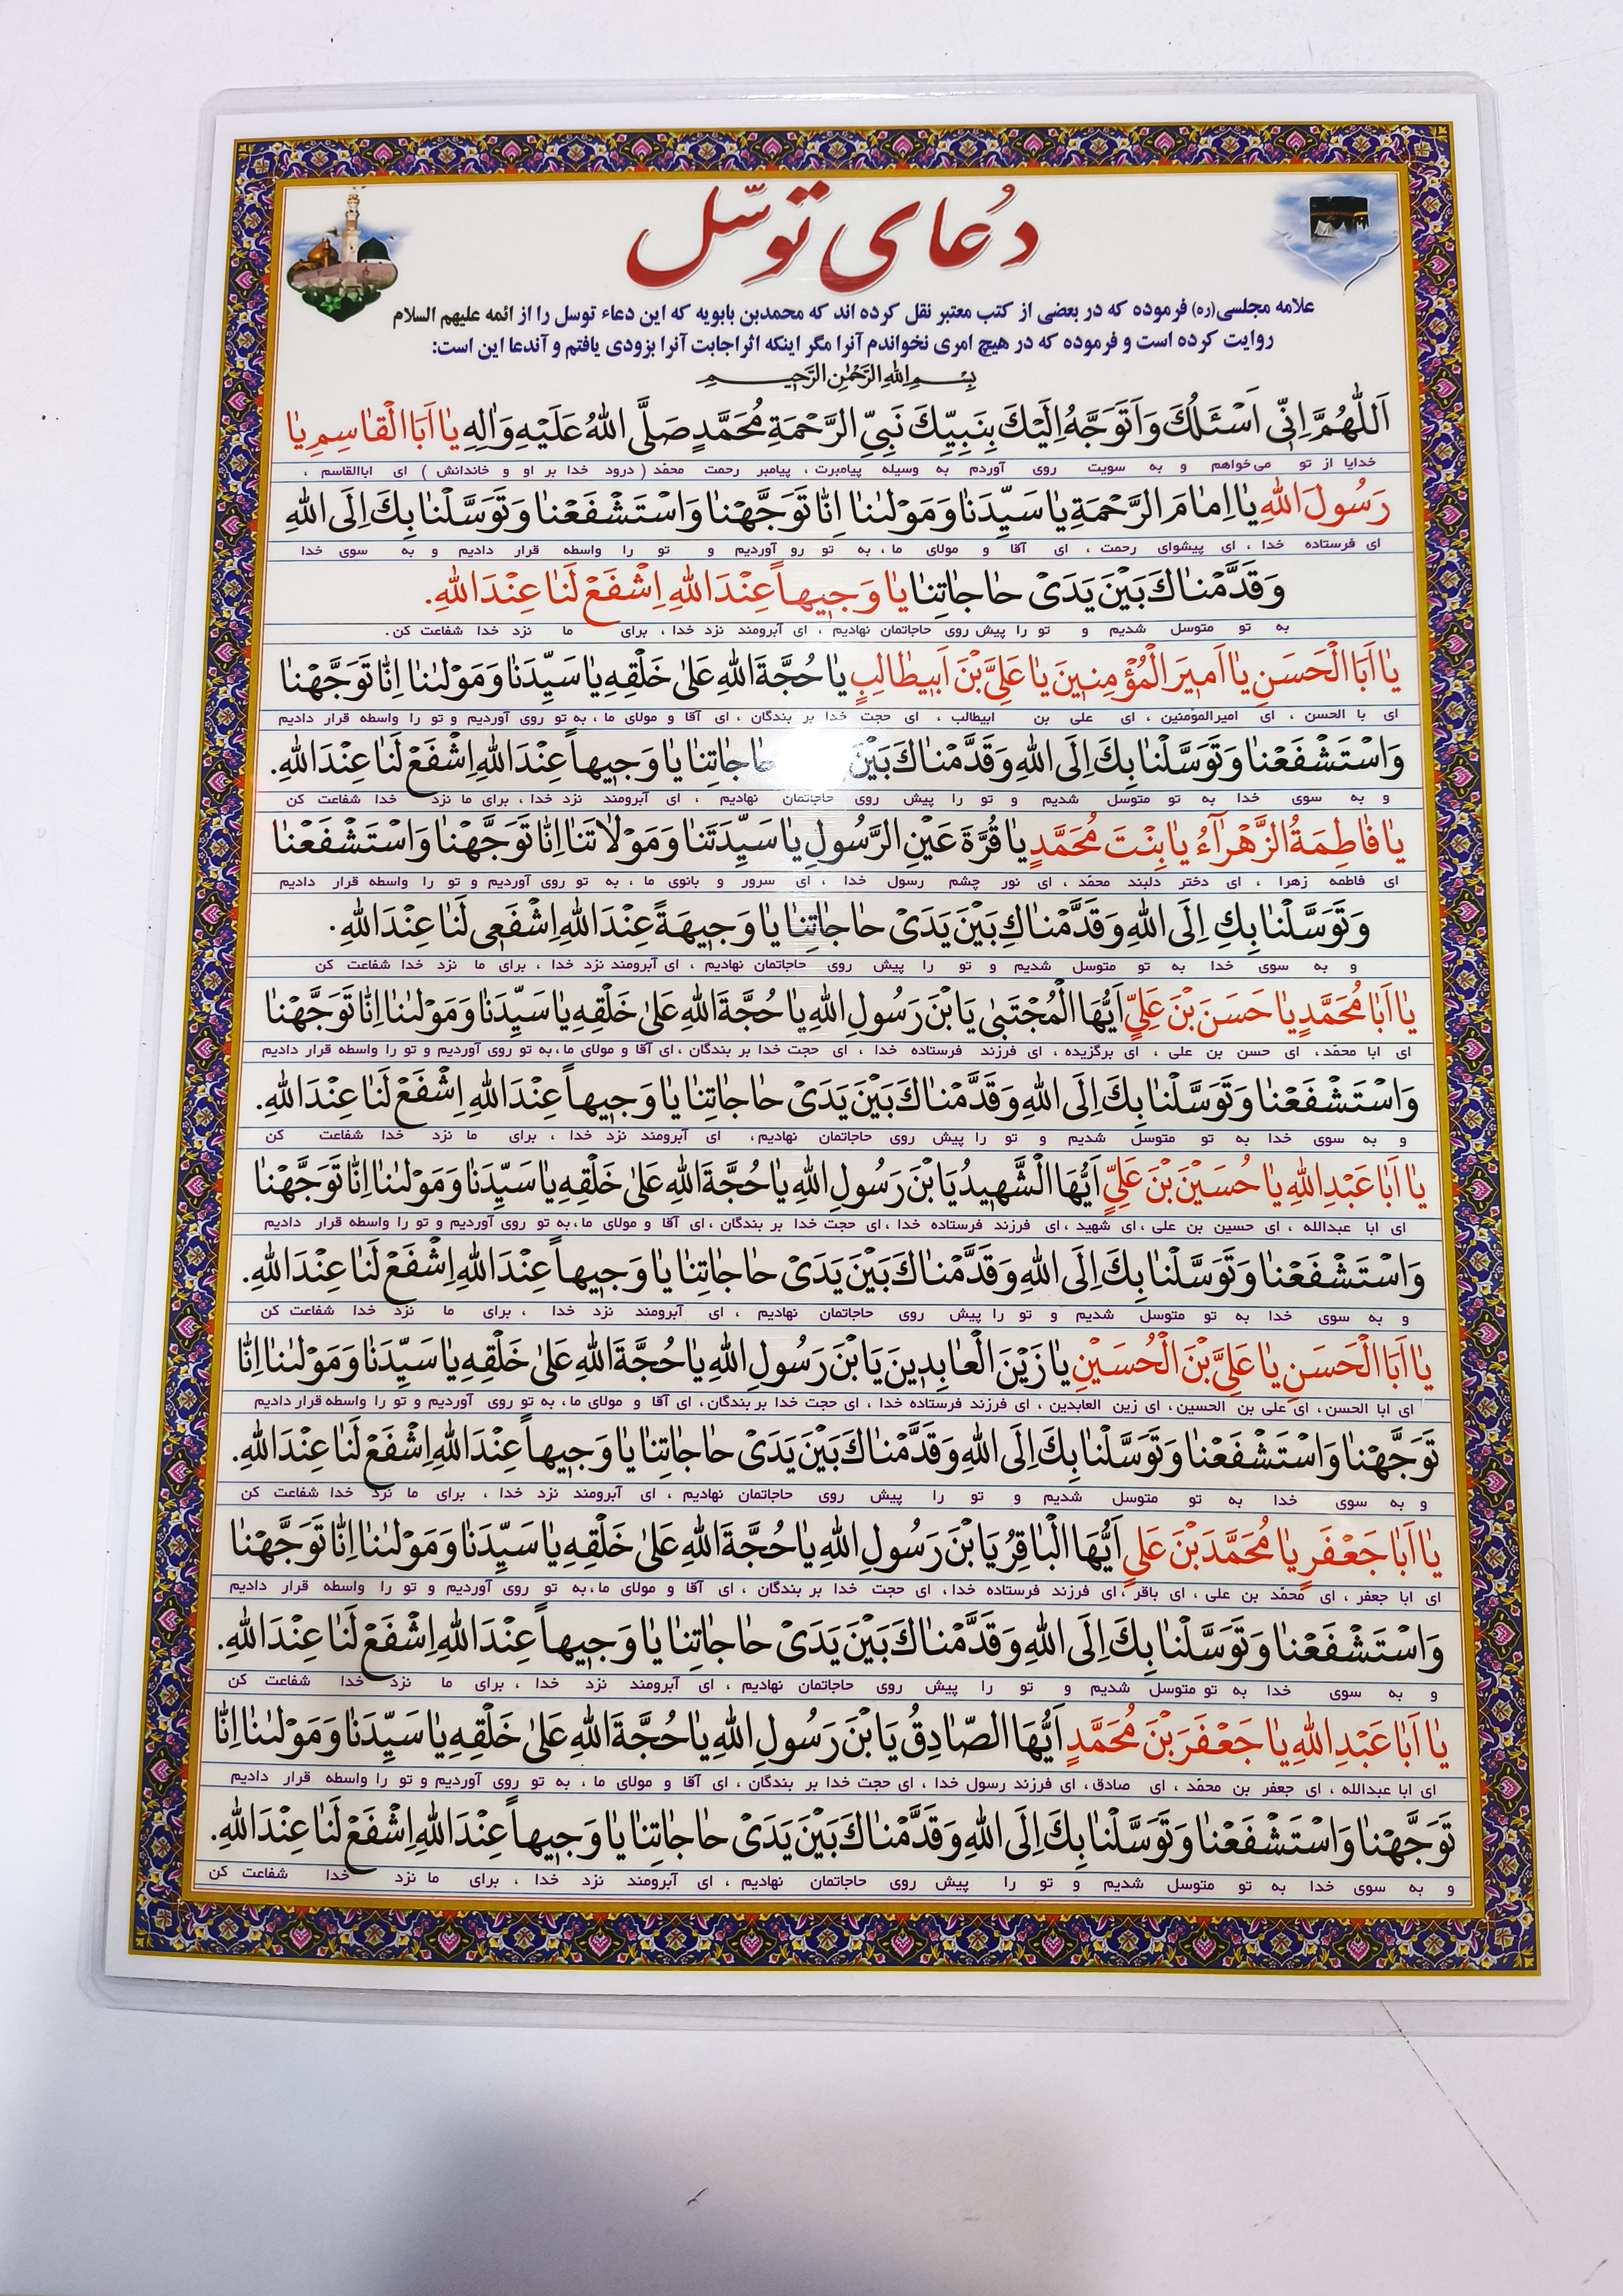 دُعای توسّل
علامه مجلسی(ره) فرموده که در بعضی از کتب معتبر نقل کرده اند که محمدبن بابویه که این دعاء توسل را از ائمه علیهم السلام
روایت کرده است و فرموده که در هیچ امری نخواندم آنرا مگر اینکه اثراجابت آنرا بزودی یافتم و آندعا این است:
بِسْمِ اللهِ الرَّحْمٰنِ الرَّحیمِ
اَللّٰهُمَّ اِنّی اَسْئَلُكَ وَاَتَوَجَّهُ اِلَیْكَ بِنَبِیِّكَ نَبِیِّ الرَّحْمَةِ مُحَمَّدٍ صَلَّی اللهُ عَلَیْهِ وَاٰلِهِ یٰا اَبَا الْقٰاسِمِ یٰا
خدایا از تو می‌خواهم و به سویت روی آوردم به وسیله پیامبرت، پیامبر رحمت محمّد (درود خدا بر او و خاندانش) ای اباالقاسم ،
رَسُولَ اللهِ یٰا اِمٰامَ الرَّحْمَةِ یٰا سَیِّدَنٰا وَمَوْلٰینٰا اِنّٰا تَوَجَّهْنٰا وَاسْتَشْفَعْنٰا وَتَوَسَّلْنٰا بِكَ اِلَی اللهِ
ای فرستاده خدا ، ای پیشوای رحمت ، ای آقا و مولای ما، به تو رو آوردیم و تو را واسطه قرار دادیم و به سوی خدا
وَقَدَّمْنٰاكَ بَیْنَ یَدَیْ حٰاجٰاتِنٰا یٰا وَجیهاً عِنْدَ اللهِ اِشْفَعْ لَنٰا عِنْدَ اللهِ.
به تو متوسل شدیم و تو را پیش روی حاجاتمان نهادیم ، ای آبرومند نزد خدا، برای ما نزد خدا شفاعت کن.
یٰا اَبَا الْحَسَنِ یٰا اَمیرَ الْمُؤْمِنینَ یٰا عَلِیَّ بْنَ اَبیطٰالِبٍ یٰا حُجَّةَ اللهِ عَلیٰ خَلْقِهِ یٰا سَیِّدَنٰا وَمَوْلٰینٰا اِنّٰا تَوَجَّهْنٰا
ای با الحسن ، ای امیرالمؤمنین ، ای علی بن ابیطالب ، ای حجت خدا بر بندگان ، ای آقا و مولای ما، به تو روی آوردیم و تو را واسطه قرار دادیم
وَاسْتَشْفَعْنٰا وَتَوَسَّلْنٰا بِكَ اِلَی اللهِ وَقَدَّمْنٰاكَ بَیْنَ حٰاجٰاتِنٰا یٰا وَجیهاً عِنْدَ اللهِ اِشْفَعْ لَنٰا عِنْدَ اللهِ.
و به سوی خدا به تو متوسل شدیم و تو را پیش روی حاجاتمان نهادیم ، ای آبرومند نزد خدا ، برای ما نزد خدا شفاعت کن
یٰا فٰاطِمَةُ الزَّهْرٰآءُ یٰا بِنْتَ مُحَمَّدٍ یٰا قُرَّةَ عَیْنِ الرَّسُولِ یٰا سَیِّدَتَنٰا وَمَوْلاٰتَنٰا اِنّٰا تَوَجَّهْنٰا وَاسْتَشْفَعْنٰا
ای فاطمه زهرا ، ای دختر دلبند محمّد ، ای نور چشم رسول خدا ، ای سرور و بانوی ما ، به تو روی آوردیم و تو را واسطه قرار دادیم
وَتَوَسَّلْنٰا بِكِ اِلَی اللهِ وَقَدَّمْنٰاكِ بَیْنَ یَدَیْ حٰاجٰاتِنٰا یٰا وَجیهَةً عِنْدَ اللهِ اِشْفَعی لَنٰا عِنْدَ اللهِ.
و به سوی خدا به تو متوسل شدیم و تو را پیش روی حاجاتمان نهادیم ، ای آبرومند نزد خدا ، برای ما نزد خدا شفاعت کن
یٰا اَبٰا مُحَمَّدٍ یٰا حَسَنَ بْنَ عَلِیٍّ اَیُّهَا الْمُجْتَبیٰ یَا بْنَ رَسُولِ اللهِ یٰا حُجَّةَ اللهِ عَلیٰ خَلْقِهِ یٰا سَیِّدَنٰا وَمَوْلٰینٰا اِنّٰا تَوَجَّهْنٰا
ای ابا محمّد، ای حسن بن علی ، ای برگزیده ، ای فرزند فرستاده خدا ، ای حجت خدا بر بندگان ، ای آقا و مولای ما، به تو روی آوردیم و تو را واسطه قرار دادیم
وَاسْتَشْفَعْنٰا وَتَوَسَّلْنٰا بِكَ اِلَی اللهِ وَقَدَّمْنٰاكَ بَیْنَ یَدَیْ حٰاجٰاتِنٰا یٰا وَجیهاً عِنْدَ اللهِ اِشْفَعْ لَنٰا عِنْدَ اللهِ.
و به سوی خدا به تو متوسل شدیم و تو را پیش روی حاجاتمان نهادیم، ای آبرومند نزد خدا ، برای ما نزد خدا شفاعت کن
یٰا اَبٰا عَبْدِ اللهِ یٰا حُسَیْنَ بْنَ عَلِیٍّ اَیُّهَا الْشَّهیدُ یَا بْنَ رَسُولِ اللهِ یٰا حُجَّةَ اللهِ عَلیٰ خَلْقِهِ یٰا سَیِّدَنٰا وَمَوْلٰینٰا اِنّٰا تَوَجَّهْنٰا
ای ابا عبدالله ، ای حسین بن علی ، ای شهید ، ای فرزند فرستاده خدا ، ای حجت خدا بر بندگان ، ای آقا و مولای ما، به تو روی آوردیم و تو را واسطه قرار دادیم
وَاسْتَشْفَعْنٰا وَتَوَسَّلْنٰا بِكَ اِلَی اللهِ وَقَدَّمْنٰاكَ بَیْنَ یَدَیْ حٰاجٰاتِنٰا یٰا وَجیهاً عِنْدَ اللهِ اِشْفَعْ لَنٰا عِنْدَ اللهِ.
و به سوی خدا به تو متوسل شدیم و تو را پیش روی حاجاتمان نهادیم ، ای آبرومند نزد خدا ، برای ما نزد خدا شفاعت کن
یٰا اَبَا الْحَسَنِ یٰا عَلِیَّ بْنَ الْحُسَیْنِ یٰا زَیْنَ الْعٰابِدینَ یَا بْنَ رَسُولِ اللهِ یٰا حُجَّةَ اللهِ عَلیٰ خَلْقِهِ یٰا سَیِّدَنٰا وَمَوْلٰینٰا اِنّٰا
ای ابا الحسن، ای علی بن الحسین، ای زین العابدین ، ای فرزند فرستاده خدا ، ای حجت خدا بر بندگان، ای آقا و مولای ما، به تو روی آوردیم و تو را واسطه قرار دادیم
تَوَجَّهْنٰا وَاسْتَشْفَعْنٰا وَتَوَسَّلْنٰا بِكَ اِلَی اللهِ وَقَدَّمْنٰاكَ بَیْنَ یَدَیْ حٰاجٰاتِنٰا یٰا وَجیهاً عِنْدَ اللهِ اِشْفَعْ لَنٰا عِنْدَ اللهِ.
و به سوی خدا به تو متوسل شدیم و تو را پیش روی حاجاتمان نهادیم ، ای آبرومند نزد خدا ، برای ما نزد خدا شفاعت کن
یٰا اَبٰا جَعْفَرٍ یٰا مُحَمَّدَ بْنَ عَلِیٍّ اَیُّهَا الْبٰاقِرُ یَا بْنَ رَسُولِ اللهِ یٰا حُجَّةَ اللهِ عَلیٰ خَلْقِهِ یٰا سَیِّدَنٰا وَمَوْلٰینٰا اِنّٰا تَوَجَّهْنٰا
ای ابا جعفر ، ای محمّد بن علی ، ای باقر ، ای فرزند فرستاده خدا، ای حجت خدا بر بندگان ، ای آقا و مولای ما، به تو روی آوردیم و تو را واسطه قرار دادیم
وَاسْتَشْفَعْنٰا وَتَوَسَّلْنٰا بِكَ اِلَی اللهِ وَقَدَّمْنٰاكَ بَیْنَ یَدَیْ حٰاجٰاتِنٰا یٰا وَجیهاً عِنْدَ اللهِ اِشْفَعْ لَنٰا عِنْدَ اللهِ.
و به سوی خدا به تو متوسل شدیم و تو را پیش روی حاجاتمان نهادیم ، ای آبرومند نزد خدا ، برای ما نزد خدا شفاعت کن
یٰا اَبٰا عَبْدِ اللهِ یٰا جَعْفَرَ بْنَ مُحَمَّدٍ اَیُّهَا الصّٰادِقُ یَا بْنَ رَسُولِ اللهِ یٰا حُجَّةَ اللهِ عَلیٰ خَلْقِهِ یٰا سَیِّدَنٰا وَمَوْلٰینٰا اِنّٰا
ای ابا عبدالله ، ای جعفر بن محمّد ، ای صادق، ای فرزند رسول خدا ، ای حجت خدا بر بندگان ، ای آقا و مولای ما ، به تو روی آوردیم و تو را واسطه قرار دادیم
تَوَجَّهْنٰا وَاسْتَشْفَعْنٰا وَتَوَسَّلْنٰا بِكَ اِلَی اللهِ وَقَدَّمْنٰاكَ بَیْنَ یَدَیْ حٰاجٰاتِنٰا یٰا وَجیهاً عِنْدَ اللهِ اِشْفَعْ لَنٰا عِنْدَ اللهِ.
و به سوی خدا به تو متوسل شدیم و تو را پیش روی حاجاتمان نهادیم ، ای آبرومند نزد خدا ، برای ما نزد خدا شفاعت کن